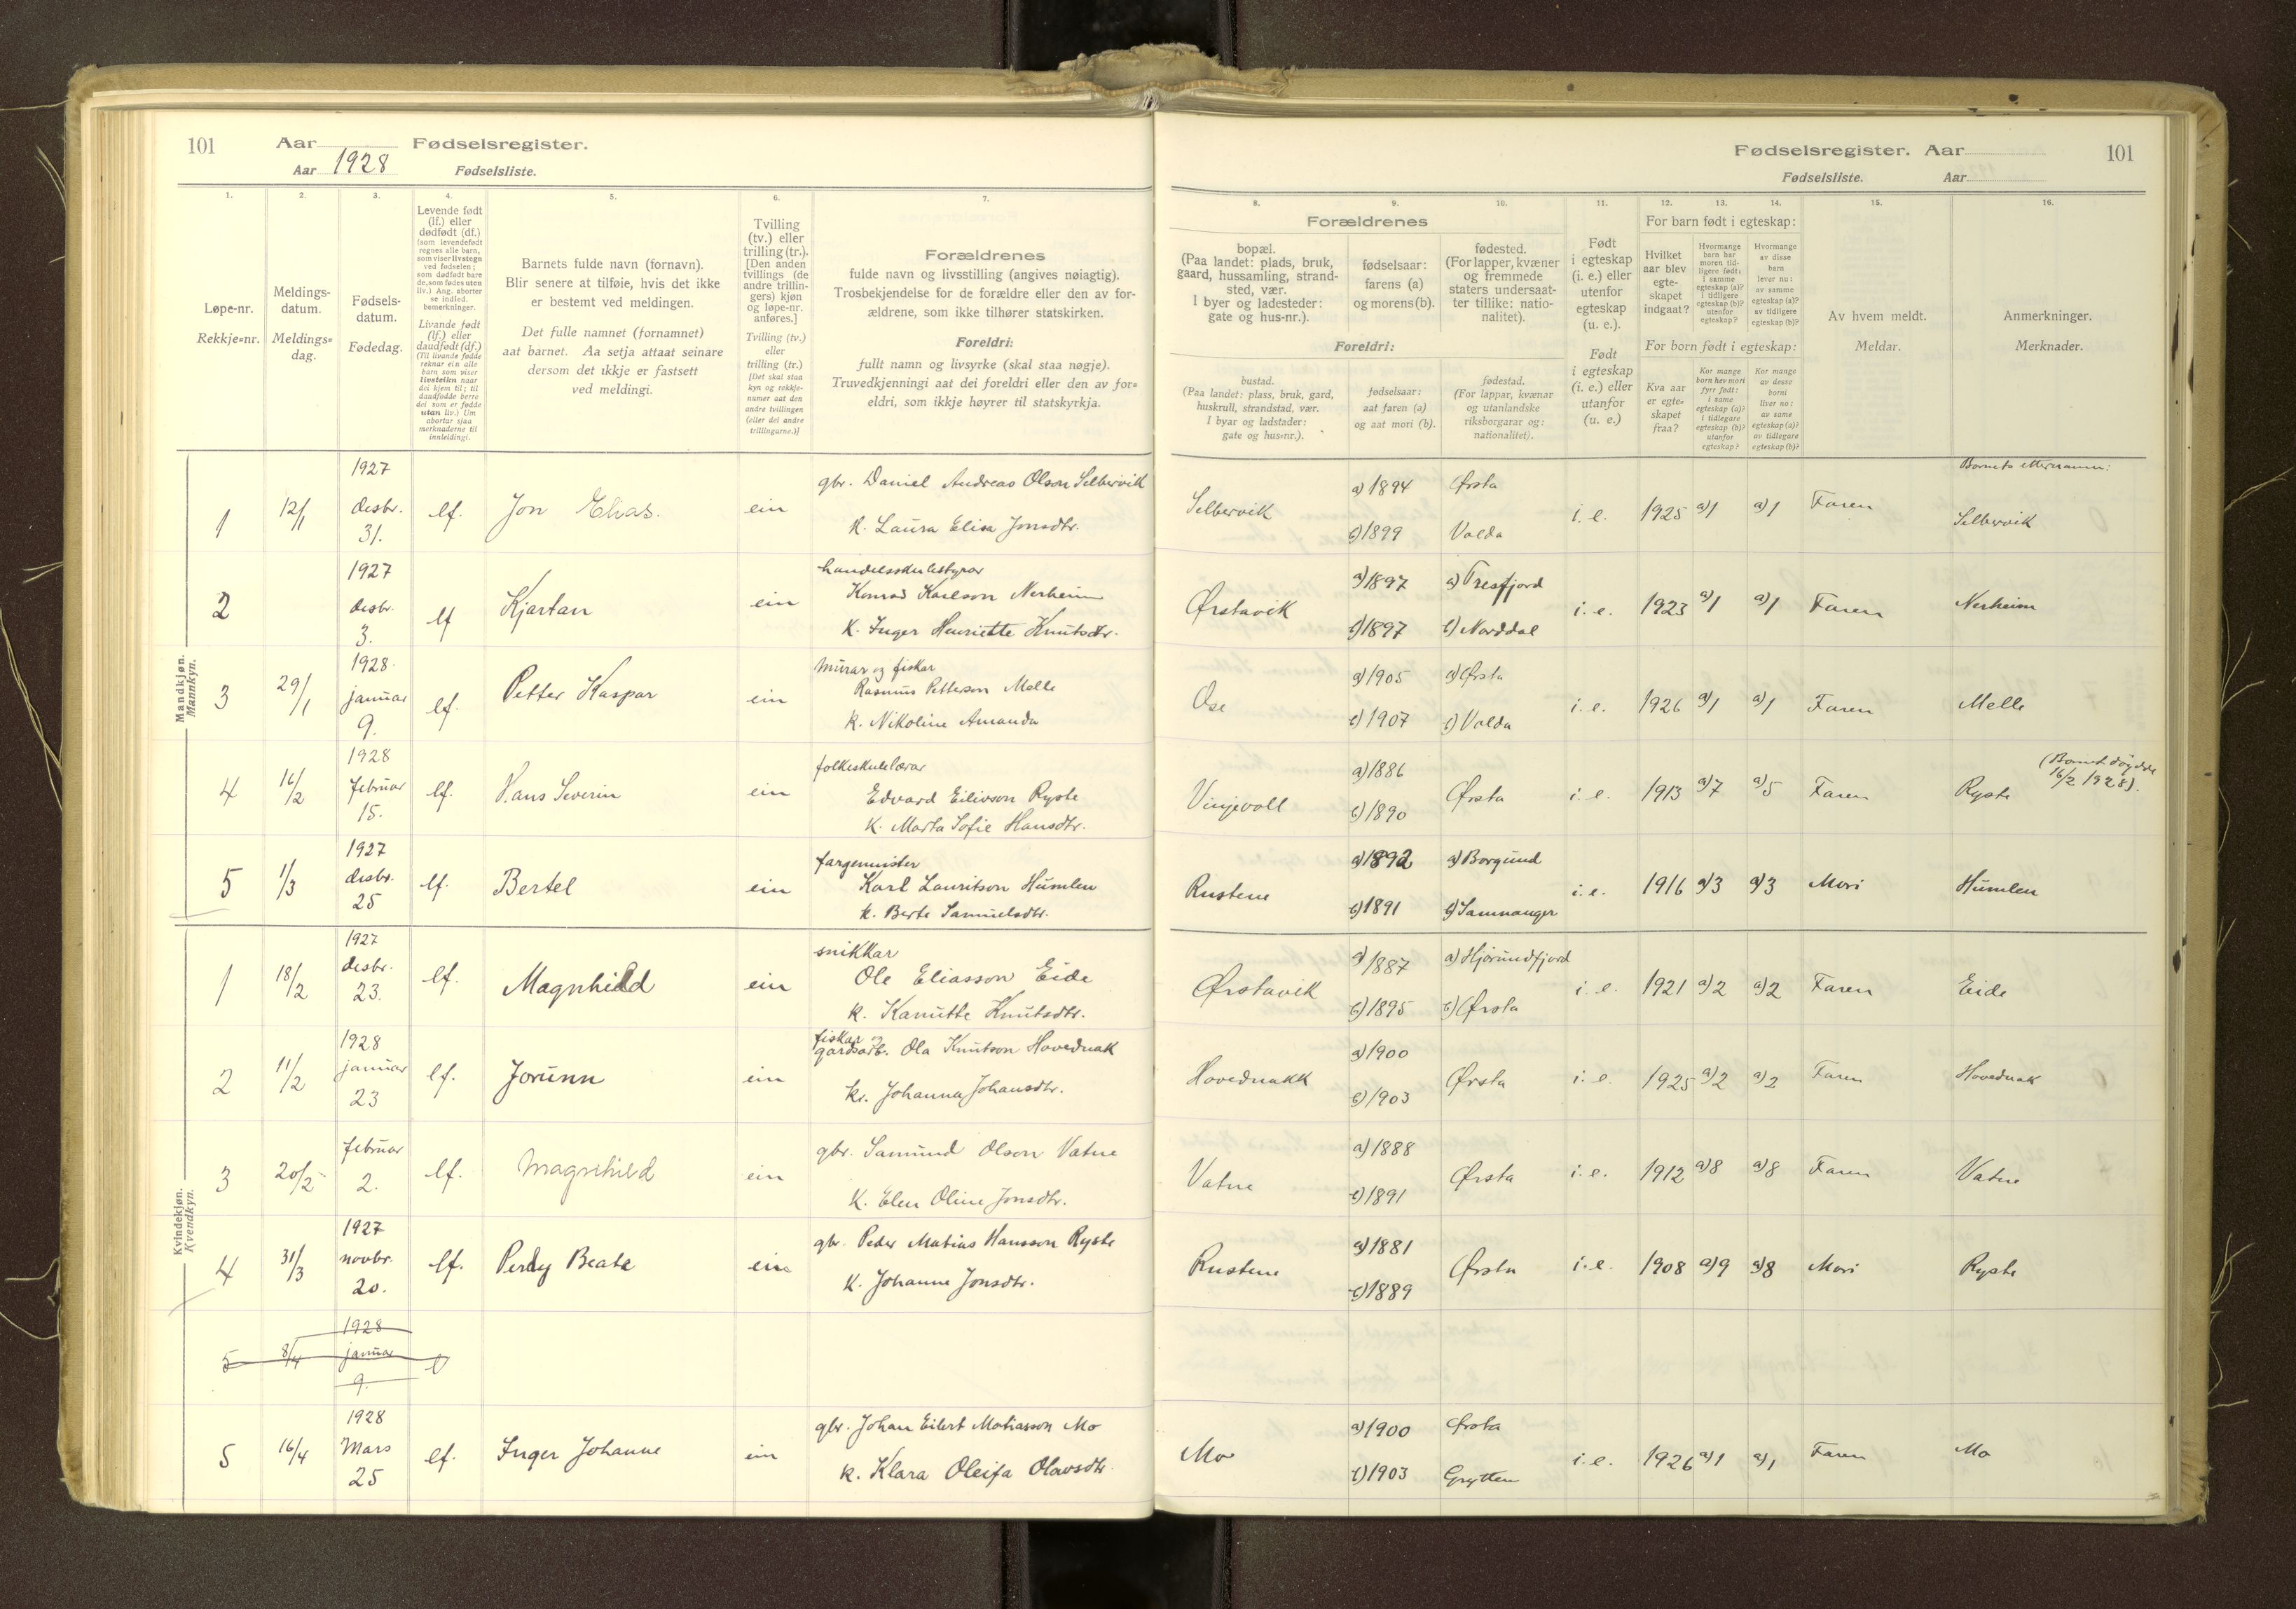 101
Aar
Fødselsregister.
Aar 1928
Fødselsliste.
Fødselsregister. Aar
101
Fødselsliste.
Aar
1.
Løpe-nr.
Rekkje=nr.
2.
Meldings-
datum.
Meldings=
dag.
3.
Fødsels-
datum.
Fødedag.
4.
Levende født
(lf.) eller
dødfødt (df.)
(som levendefødt
regnes alle barn,
som viser livstegn
ved fødselen;
som dødfødt bare
de, som fødes uten
liv.) Ang. aborter
se indled.
bemerkninger.
Livande født
(lf.) eller
daudfødt (df.)
(Til livande fødde
reknar ein alle
barn som viser
livsteikn naar
dei kjem til; til
daudfødde berre
dei som er fødde
utan liv.) Um
abortar sjaa
merknaderne til
innleidingi.
5.
Barnets fulde navn (fornavn).
Blir senere at tilføie, hvis det ikke
er bestemt ved meldingen.
Det fulle namnet (fornamnet)
aat barnet. Aa setja attaat seinare
dersom det ikkje er fastsett
ved meldingi.
6.
Tvilling
(tv.) eller
trilling (tr.).
[Den anden
tvillings (de
andre trillin-
gers) kjøn
og løpe-nr.
anføres.]
Tvilling (tv.)
eller
trilling (tr.)
[Det skal staa
kyn og rekkje-
numer aat den
andre tvillingen
(eller dei andre
trillingarne.)]
7.
Forældrenes
fulde navn og livsstilling (angives nøiagtig).
Trosbekjendelse for de forældre eller den av for-
ældrene, som ikke tilhører statskirken.
Foreldri:
fullt namn og livsyrke (skal staa nøgje).
Truvedkjenningi aat dei foreldri eller den av for=
eldri, som ikkje høyrer til statskyrkja.
8.
9.
10.
Forældrenes
bopæl.
(Paa landet: plads, bruk,
gaard, hussamling, strand-
sted, vær.
I byer og ladesteder:
gate og hus-nr.).
fødselsaar:
farens (a)
og morens (b).
fødested.
(For lapper, kvæner
og fremmede
staters undersaat-
ter tillike: natio-
nalitet).
Foreldri:
bustad.
(Paa landet: plass, bruk, gard,
huskrull, strandstad, vær.
I byar og ladstader:
gate og hus=nr.).
fødselsaar:
aat faren (a)
og aat mori (b).
fødestad.
(For lappar, kvænar
og utanlandske
riksborgarar og:
nationalitet).
11.
Født
i egteskap
(i. e.) eller
utenfor
egteskap
(u. e.).
Født
i egteskap
(i. e.) eller
utanfor
(u. e.)
12.
13.
14.
For barn født i egteskap:
Hvilket
aar blev
egte-
skapet
indgaat?
Hvormange
barn har
moren tid-
ligere født:
i samme
egteskap (a)?
i tidligere
egteskap (b)?
utenfor
egteskap?
Hvormange
av disse
barn
lever nu:
av samme
egteskap (a)?
av tidligere
egteskap (b)?
For born født i egteskap:
Kva aar
er egte=
skapet
fraa?
Kor mange
born hev mori
fyrr født:
i same
egteskap (a)?
i tidlegare
egteskap (b)?
utanfor
egteskap?
Kor mange
av desse
borni
liver no:
av same
egteskap (a)?
av tidlegare
egteskap (b)?
15.
Av hvem meldt.
Meldar.
16.
Anmerkninger.
Merknader.
Mandkjøn.
Mannkyn.
1 12/1 1927 desbr. 31. lf. Jon Elias. ein
gbr. Daniel Andreas Olson Selbervik
k. Laura Elisa Jonsdtr.
Selbervik a) 1894 b) 1899 Ørsta Volda i. e. 1925 a) 1 a) 1 Faren
Barnets etternamn:
Selbervik
2 1927 desbr. 3. lf Kjartan ein
handelsskulestyrar
Konrad Karlson Nerheim
k. Inger Henriette Knutsdtr.
Ørstavik a) 1897 b) 1897 a) Tresfjord b) Norddal i. e. 1923 a) 1 a) 1 Faren Nerheim
3 29/1 1928. januar 9. lf. Petter Kaspar ein
Murar og fiskar
Rasmus Petterson Melle
k. Nikoline Amanda
Ose a) 1905 b) 1907 a) Ørsta b) Volda i. e. 1926 a) 1 a) 1 Faren Melle
4 16/2 1928 februar 15. lf. Hans Severin ein
folkeskulelærar
Edvard Eilivson Ryste
k. Marta Sofie Hansdtr.
Vinjevoll a) 1886 b) 1890 Ørsta i. e. 1913 a) 7 a) 5 Faren Ryste
(Barnet døydde
16/2 1928).
5 1/3 1927 desbr. 25 lf. Bertel ein
fargemeister
Karl Lauritson Humlen
k. Berte Samuelsdtr.
Rustene a) 1892 b) 1891 a) Borgund b) Samnanger i. e. 1916 a) 3 a) 3 Mori Humlen
Kvindekjøn.
Kvendkyn.
1 18/2 1927 desbr. 23. lf. Magnhild ein
snikkar
Ole Eliasson Eide
k. Kanutte Knutsdtr.
Ørstavik a) 1887 b) 1895 a) Hjørundfjord b) Ørsta i. e. 1921 a) 2 a) 2 Faren Eide
2 11/2 1928 januar 23 lf. Jorunn ein
fiskar og
gardsarb. Ola Knutson Hovednak
k. Johanna Johansdtr.
Hovednakk a) 1900 b) 1903 Ørsta i. e. 1925 a) 2 a) 2 Faren Hovednak
3 20/2 februar 2. lf. Magnhild ein
gbr. Samund Olson Vatne
k. Elen Oline Jonsdtr.
Vatne a) 1888 b) 1891 Ørsta i. e. 1912 a) 8 a) 8 Faren Vatne
4 31/3 1927 novbr. 20. lf. Perly Beate ein
gbr. Peder Matias Hansson Ryste
k. Johanne Jonsdtr.
Rustene a) 1881 b) 1889 Ørsta i. e. 1908 a) 9 a) 8 Mori Ryste
5 8/4 1928 januar 9. l
5 16/4 1928 Mars 25 lf. Inger Johanne ein
gbr. Johan Eilert Matiasson Mo
k. Klara Oleifa Olavsdtr.
Mo a) 1900 b) 1903 Ørsta Grytten i. e. 1926 a) 1 a) 1 Faren Mo